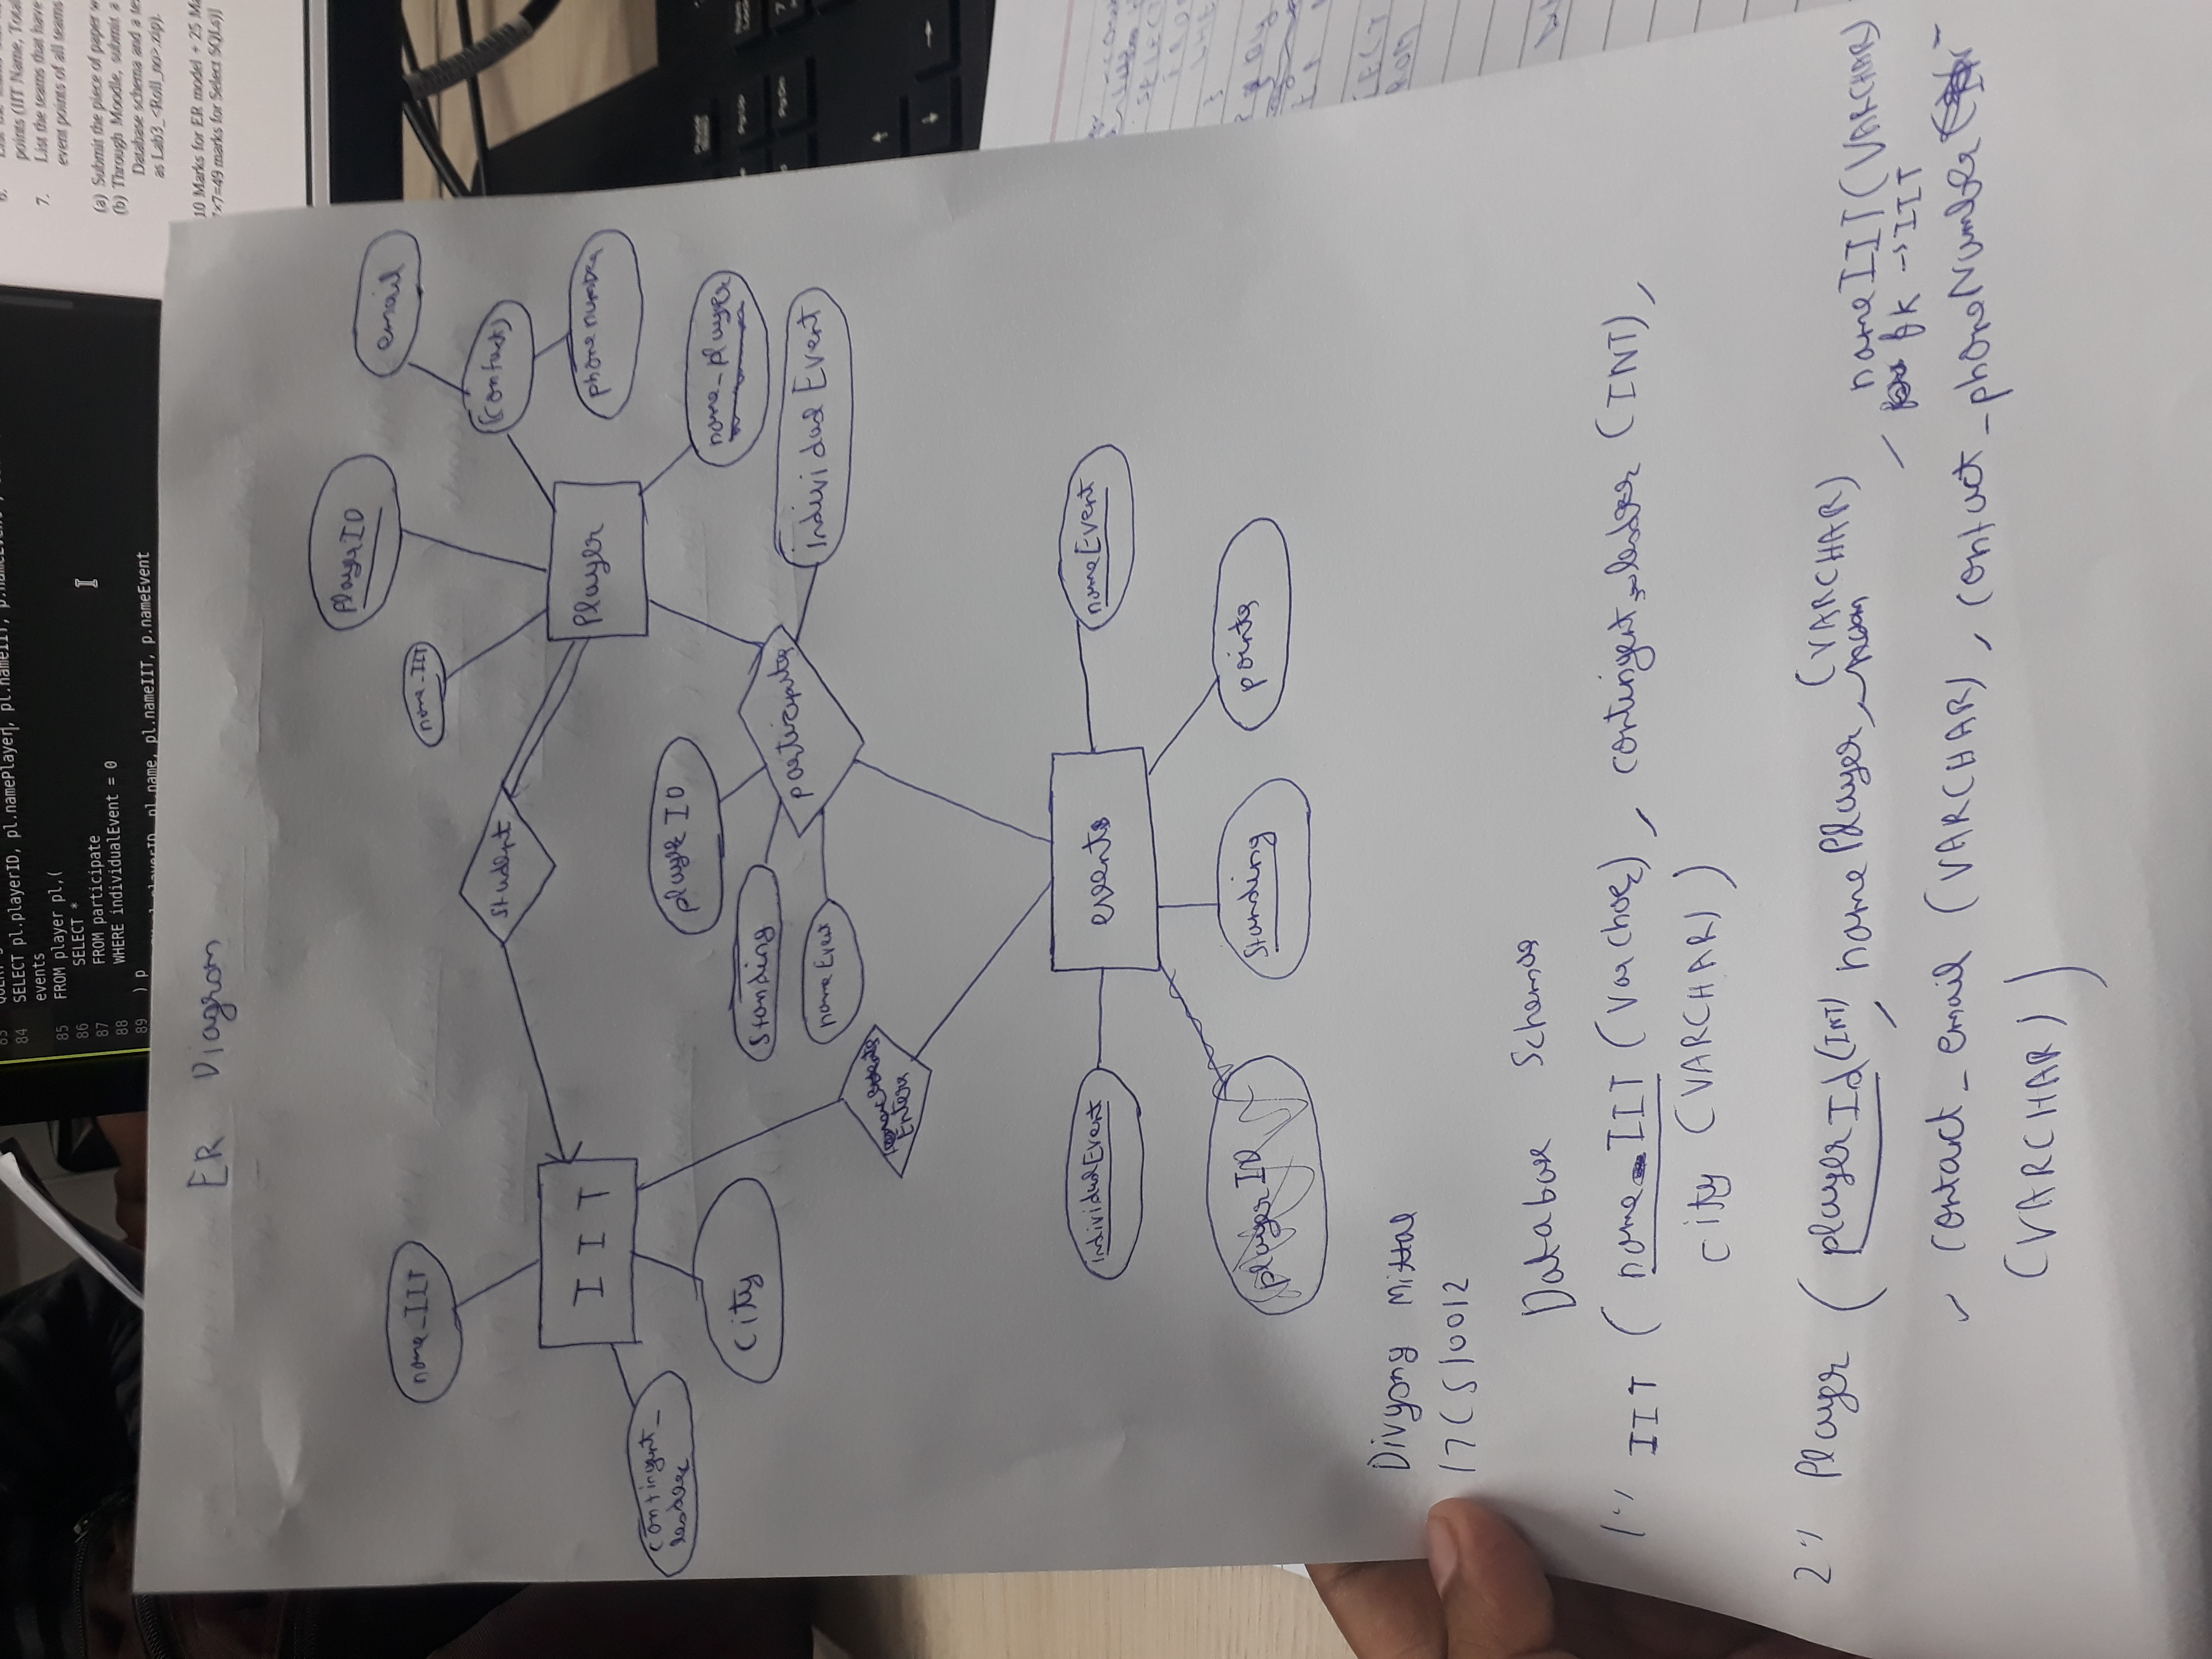 84 SELECT pl.playerID, pl.namePlayer, pl.nameIIT,
events
85 FROM player pl,(
86 SELECT *
87 FROM participate
88 WHERE individualEvent = 0
89 ) p
pl.playerID, pl.name, pl.nameIIT, p.nameEvent
points (IIT Name, Total
7. List the teams that have
event points of all teams
(a) Submit the piece of paper w
(b) Through Moodle, submit a
Database schema and a te
as Lab3_<Roll_no>.zip).
10 Marks for ER model + 25 Ma
7×7=49 marks for Select SQLs)]
ER Diagram
PlayerID
email
name_IIT
name_IIT
(contact)
student
IIT
Player
phone number
contingent_
leader
player ID
city
name_player
Standing
participate
individual Event
name Event
Enters
individualEvent
events
nameEvent
player ID
Standing
points
Divyang Mittal
17CS10012
Database Schema
1.) IIT ( name_IIT (Varchar), contingent_leader (INT),
city (VARCHAR) )
2.) Player ( playerId (INT), namePlayer (VARCHAR), nameIIT (VARCHAR)
fk → IIT
, contact_email (VARCHAR), contact_phoneNumber
(VARCHAR) )
Pause
PgUp
PgDn
7
SELECT
LECT
ROM